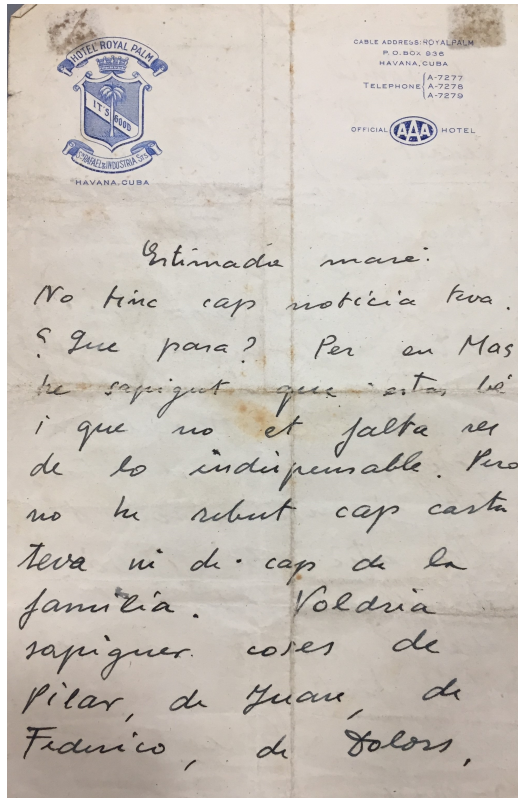 HOTEL ROYAL PALM
IT'S GOOD
Sn RAFAEL & INDUSTRIA STS
HAVANA, CUBA
CABLE ADDRESS: ROYALPALM
P.O. BOX 936
HAVANA, CUBA
TELEPHONE A-7277
A-7278
A-7279
OFFICIAL AAA HOTEL
Estimada mare:
No tinc cap notícia teva.
¿Que pasa? Per en Mas
he sapigut que estas bé
i que no et falta res
de lo indispensable. Pero
no he rebut cap carta
teva ni de cap de la
família. Voldria
sapiguer coses de
Pilar, de Juan, de
Federico, de Dolors,